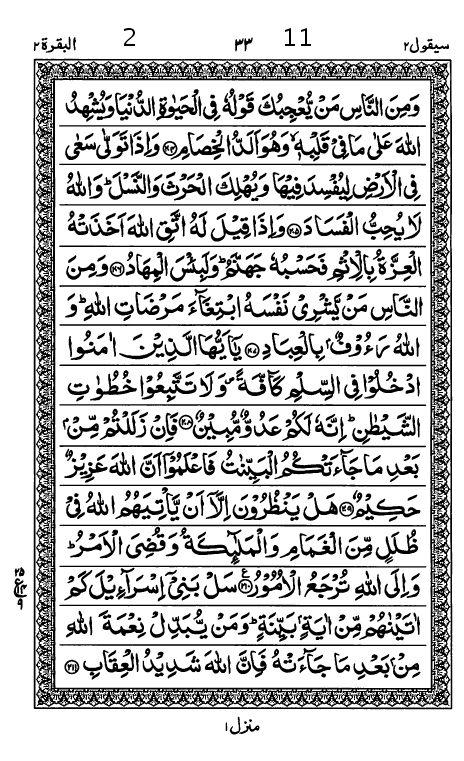 البقرة ٢ 2 ٣٣ 11 سيقول ٢
وَمِنَ النَّاسِ مَنْ يُّعْجِبُكَ قَوْلُهٗ فِى الْحَيٰوةِ الدُّنْيَا وَيُشْهِدُ
اللّٰهَ عَلٰى مَا فِىْ قَلْبِهٖ ۙ وَهُوَ اَلَدُّ الْخِصَامِ ﴿۲۰۴﴾ وَاِذَا تَوَلّٰى سَعٰى
فِى الْاَرْضِ لِيُفْسِدَ فِيْهَا وَيُهْلِكَ الْحَرْثَ وَالنَّسْلَ ؕ وَاللّٰهُ
لَا يُحِبُّ الْفَسَادَ ﴿۲۰۵﴾ وَاِذَا قِيْلَ لَهُ اتَّقِ اللّٰهَ اَخَذَتْهُ
الْعِزَّةُ بِالْاِثْمِ فَحَسْبُهٗ جَهَنَّمُ ؕ وَلَبِئْسَ الْمِهَادُ ﴿۲۰۶﴾ وَمِنَ
النَّاسِ مَنْ يَّشْرِىْ نَفْسَهُ ابْتِغَآءَ مَرْضَاتِ اللّٰهِ ؕ وَ
اللّٰهُ رَءُوْفٌۢ بِالْعِبَادِ ﴿۲۰۷﴾ يٰۤاَيُّهَا الَّذِيْنَ اٰمَنُوا
ادْخُلُوْا فِى السِّلْمِ كَآفَّةً ۪ وَلَا تَتَّبِعُوْا خُطُوٰتِ
الشَّيْطٰنِ ؕ اِنَّهٗ لَكُمْ عَدُوٌّ مُّبِيْنٌ ﴿۲۰۸﴾ فَاِنْ زَلَلْتُمْ مِّنْۢ
بَعْدِ مَا جَآءَتْكُمُ الْبَيِّنٰتُ فَاعْلَمُوْۤا اَنَّ اللّٰهَ عَزِيْزٌ
حَكِيْمٌ ﴿۲۰۹﴾ هَلْ يَنْظُرُوْنَ اِلَّاۤ اَنْ يَّاْتِيَهُمُ اللّٰهُ فِىْ
ظُلَلٍ مِّنَ الْغَمَامِ وَالْمَلٰٓئِكَةُ وَقُضِىَ الْاَمْرُ ؕ
وَاِلَى اللّٰهِ تُرْجَعُ الْاُمُوْرُ ﴿۲۱۰﴾ ع سَلْ بَنِىْۤ اِسْرَآءِيْلَ كَمْ
اٰتَيْنٰهُمْ مِّنْ اٰيَةٍۭ بَيِّنَةٍ ؕ وَمَنْ يُّبَدِّلْ نِعْمَةَ اللّٰهِ
مِنْۢ بَعْدِ مَا جَآءَتْهُ فَاِنَّ اللّٰهَ شَدِيْدُ الْعِقَابِ ﴿۲۱۱﴾
۲۵
ع
۹
منزل ١